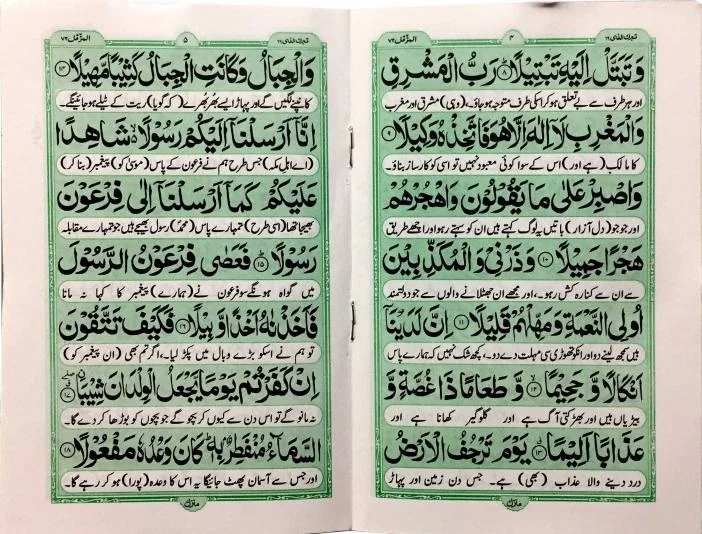 تبارك الذى ٢٩
٤
المزمل ٧٣
وَ تَبَتَّلْ اِلَيْهِ تَبْتِيْلًا ۞٨ رَبُّ الْمَشْرِقِ
اور ہر طرف سے بے تعلق ہو کر اسکی طرف متوجہ ہو جاؤ۔ (وہی) مشرق اور مغرب
وَالْمَغْرِبِ لَاۤ اِلٰهَ اِلَّا هُوَ فَاتَّخِذْهُ وَكِيْلًا ۞٩
کا مالک (ہے اور) اس کے سوا کوئی معبود نہیں تو اسی کو کارساز بناؤ۔
وَاصْبِرْ عَلٰى مَا يَقُوْلُوْنَ وَاهْجُرْهُمْ
اور جو جو (دل آزار) باتیں یہ لوگ کہتے ہیں ان کو سہتے رہو اور اچھے طریق
هَجْرًا جَمِيْلًا ۞١٠ وَذَرْنِيْ وَالْمُكَذِّبِيْنَ
سے ان سے کنارہ کش رہو۔ اور مجھے ان جھٹلانے والوں سے جو دولتمند
اُولِى النَّعْمَةِ وَمَهِّلْهُمْ قَلِيْلًا ۞١١ اِنَّ لَدَيْنَاۤ
ہیں سمجھ لینے دو اور انکو تھوڑی سی مہلت دے دو۔ کچھ شک نہیں کہ ہمارے پاس
اَنْكَالًا وَّ جَحِيْمًا ۞١٢ وَّ طَعَامًا ذَا غُصَّةٍ وَّ
بیڑیاں ہیں اور بھڑکتی آگ ہے اور گلوگیر کھانا ہے اور
عَذَابًا اَلِيْمًا ۞١٣ يَوْمَ تَرْجُفُ الْاَرْضُ
درد دینے والا عذاب (بھی) ہے۔ جس دن زمین اور پہاڑ
منزل
تبارك الذى ٢٩
٥
المزمل ٧٣
وَالْجِبَالُ وَكَانَتِ الْجِبَالُ كَثِيْبًا مَّهِيْلًا ۞١٤
کانپنے لگیں گے اور پہاڑ ایسے بھر بھرے (کہ گویا) ریت کے ٹیلے ہو جائینگے۔
اِنَّاۤ اَرْسَلْنَاۤ اِلَيْكُمْ رَسُوْلًا شَاهِدًا
(اے اہل مکہ) جس طرح ہم نے فرعون کے پاس (موسیٰ کو) پیغمبر (بنا کر)
عَلَيْكُمْ كَمَاۤ اَرْسَلْنَاۤ اِلٰى فِرْعَوْنَ
بھیجا تھا (اسی طرح) تمہارے پاس (محمدؐ) رسول بھیجے ہیں جو تمہارے مقابلہ
رَسُوْلًا ۞١٥ فَعَصٰى فِرْعَوْنُ الرَّسُوْلَ
میں گواہ ہونگے سو فرعون نے (ہمارے) پیغمبر کا کہا نہ مانا
فَاَخَذْنٰهُ اَخْذًا وَّبِيْلًا ۞١٦ فَكَيْفَ تَتَّقُوْنَ
تو ہم نے اسکو بڑے وبال میں پکڑ لیا۔ اگر تم بھی (ان پیغمبر کو)
اِنْ كَفَرْتُمْ يَوْمًا يَّجْعَلُ الْوِلْدَانَ شِيْبًا ۞١٧
نہ مانو گے تو اس دن سے کیوں کر بچو گے جو بچوں کو بوڑھا کر دے گا۔
السَّمَآءُ مُنْفَطِرٌۢ بِهٖ كَانَ وَعْدُهٗ مَفْعُوْلًا ۞١٨
اور جس سے آسمان پھٹ جائیگا یہ اس کا وعدہ (پورا) ہو کر رہے گا۔
منزل